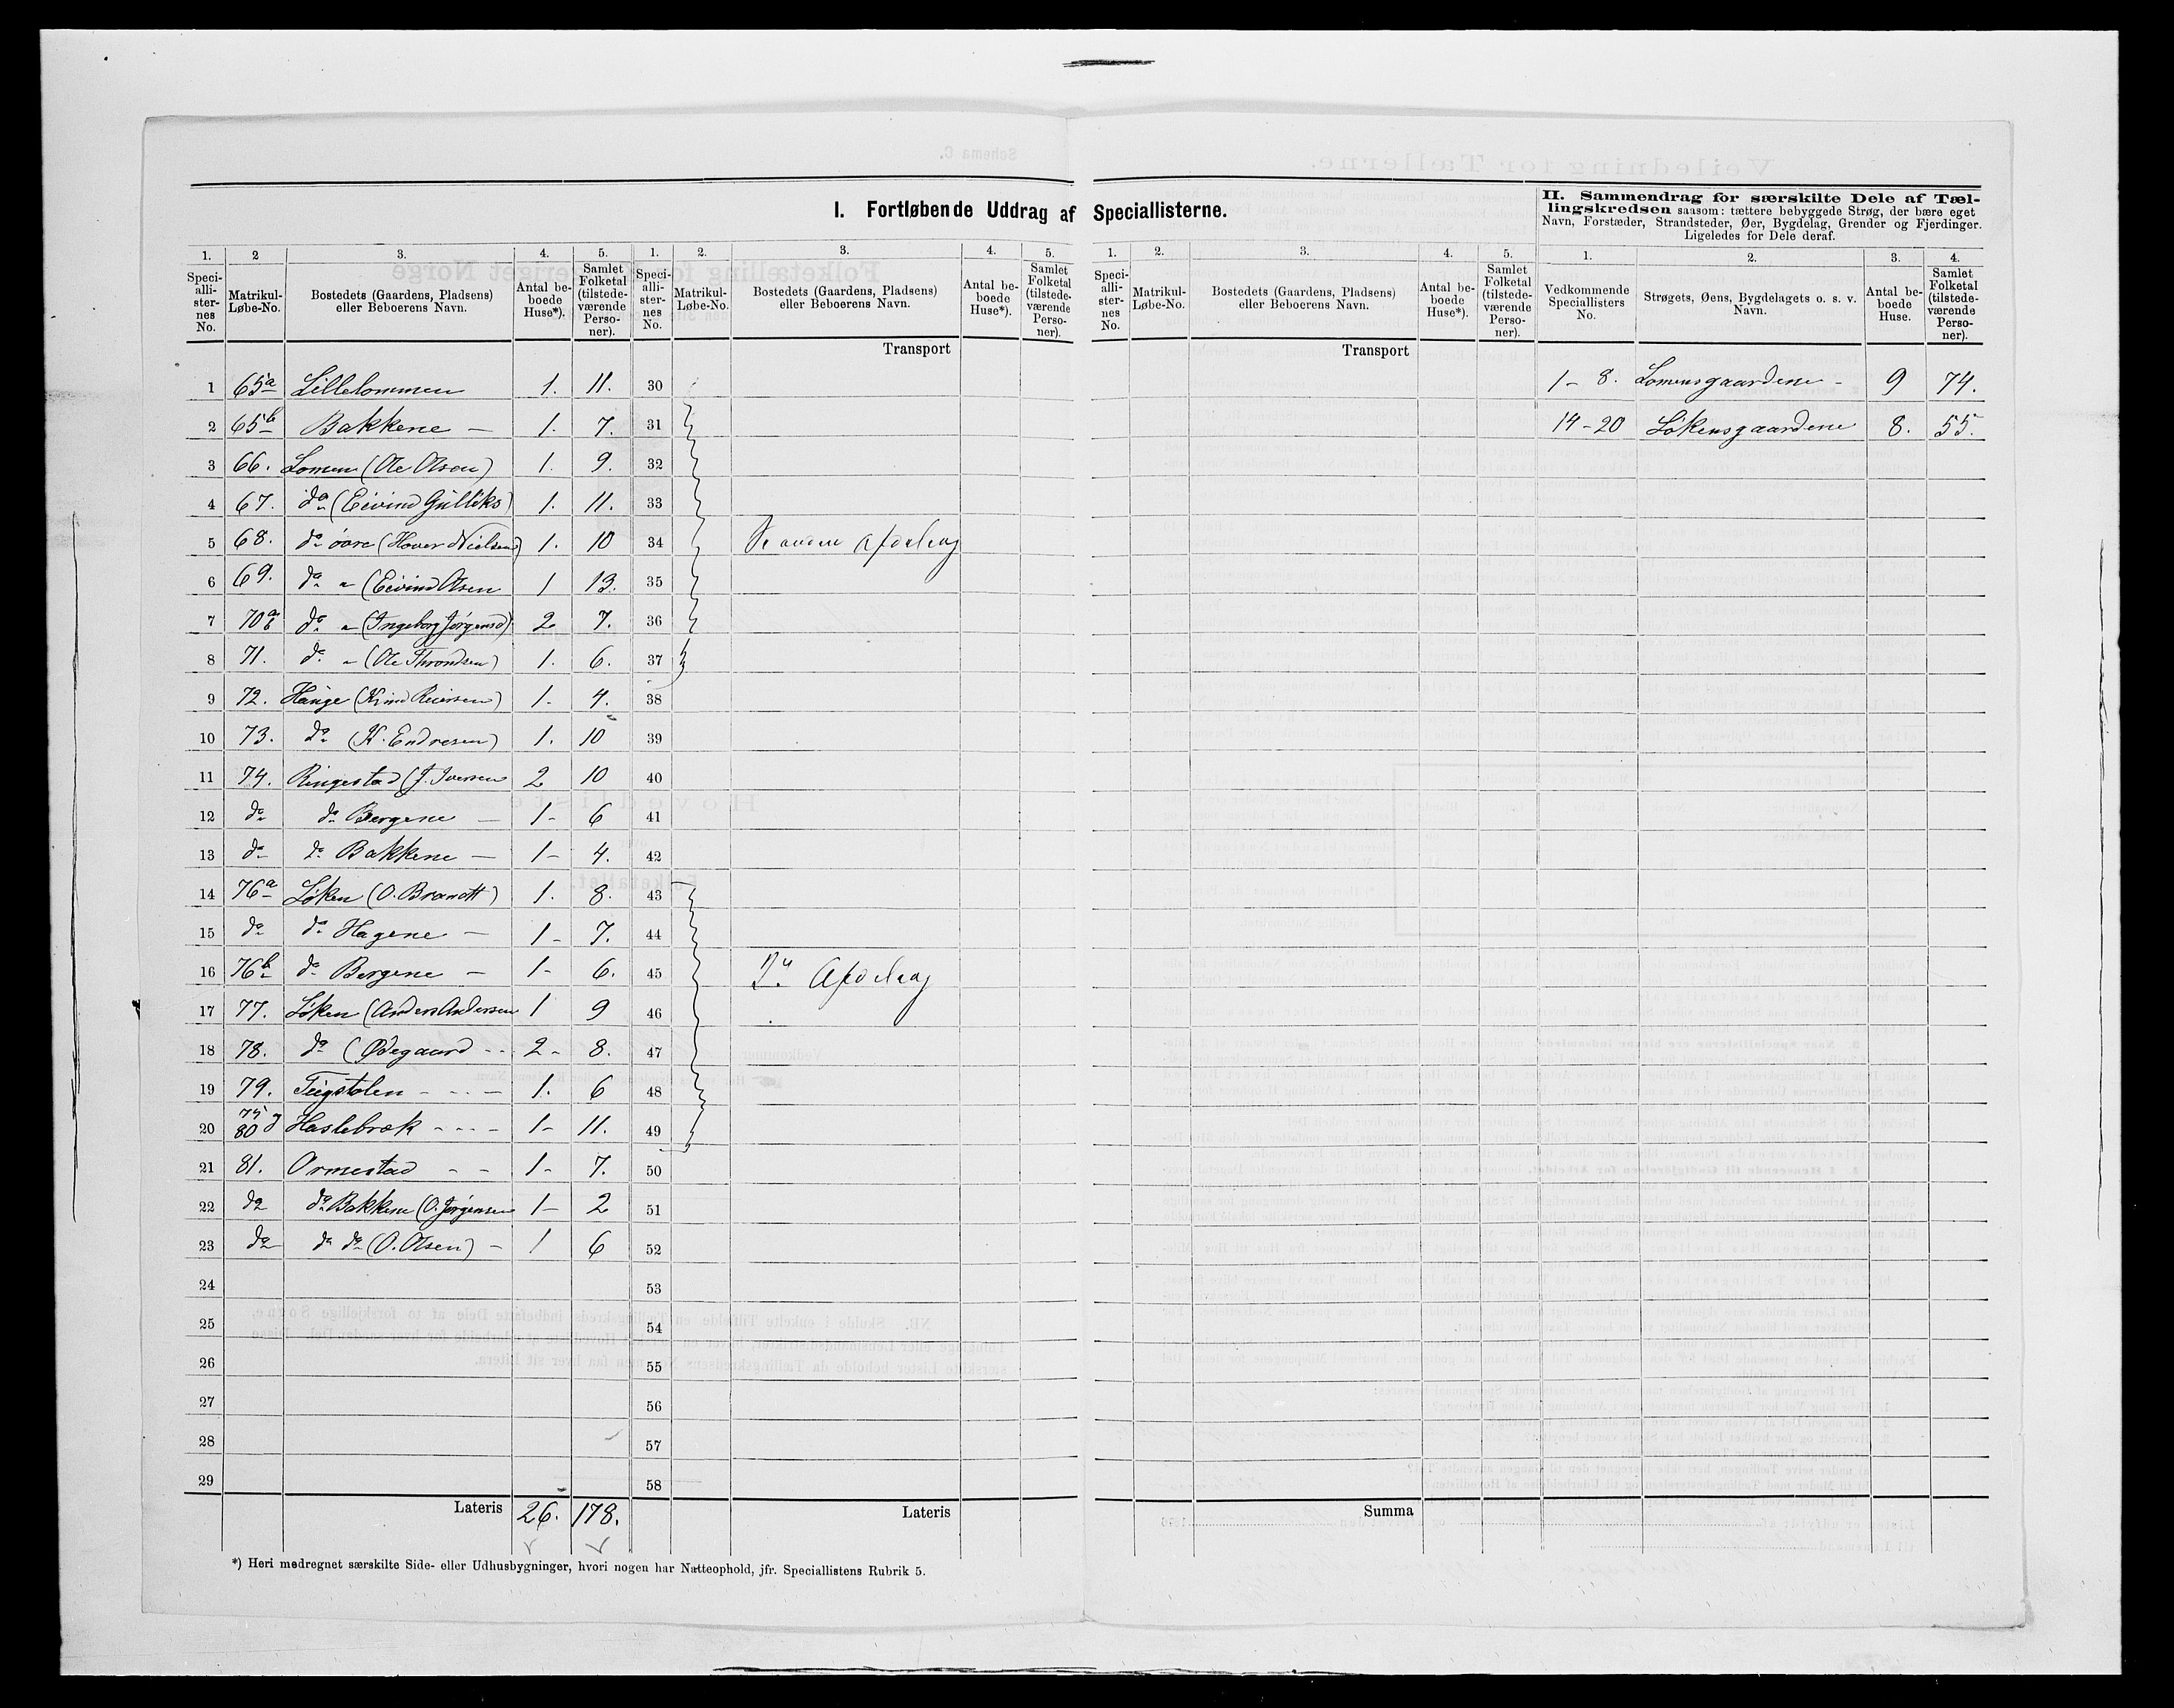 I. Fortløbende Uddrag af Speciallisterne.
II. Sammendrag for særskilte Dele af Tæl-
lingskredsen saasom: tættere bebyggede Strøg, der bære eget
Navn, Forstæder, Strandsteder, Øer, Bygdelag, Grender og Fjerdinger.
Ligeledes for Dele deraf.
1. 2 3. 4. 5. 1. 2. 3. 4. 5. 1. 2. 3. 4. 5. 1. 2. 3. 4.
Speci-alli-ster-nes No. Matrikul-Løbe-No. Bostedets (Gaardens, Pladsens) eller Beboerens Navn. Antal be-boede Huse*). Samlet Folketal (tilstede-værende Perso-ner).
Speci-alli-ster-nes No. Matrikul-Løbe-No. Bostedets (Gaardens, Pladsens) eller Beboerens Navn. Antal be-boede Huse*). Samlet Folketal (tilstede-værende Perso-ner).
Speci-alli-ster-nes No. Matrikul-Løbe-No. Bostedets (Gaardens, Pladsens) eller Beboerens Navn. Antal be-boede Huse*). Samlet Folketal (tilstede-værende Perso-ner).
Vedkommende Speciallisters No. Strøgets, Øens, Bygdelagets o. s. v. Navn. Antal be-boede Huse. Samlet Folketal (tilstede-værende Perso-ner).
Transport Transport
1 65a Lillelommen 1. 11. 30 1 - 8. Lomensgaardene - 9 74.
2 65b Bakkene - 1. 7. 31 14 - 20 Lökensgaardene 8. 55.
3 66. Lomen (Ole Olsen) 1. 9. 32
4 67. do (Eivind Gulliks) 1. 11. 33
5 68. do övre (Hover Nielsen) 1. 10 34
6 69. do " (Eivind Olsen 1 13. 35
7 70 a b do " (Ingeborg Jörgensd) 2 7. 36
8 71. do " (Ole Throndsen) 1. 6. 37
9 72. Hauge (Knud Reiersen) 1- 4. 38
10 73. do (K. Endresen) 1. 10 39
11 74. Ringestad (J. Iversen 2 10 40
12 do do Bergene - 1- 6 41
13 do do Bakkene - 1- 4. 42
14 76a Löken (O. Brandt) 1. 8. 43
15 do do Hagene - 1- 7. 44
16 76b do Bergene - 1- 6. 45
17 77. Löken (Anders Andersen 1 9 46
18 78. do (Ødegaard - - 2- 8. 47
19 79. Teigstolen - - - 1. 6 48
20 75 80 Haslebrek - - - 1- 11. 49
21 81. Ormestad - - 1- 7. 50
22 do do Bakkene (O. Jörgensen 1- 2 51
23 do do do (O. Olsen) - 1 6 52
24 53
25 54
26 55
27 56
28 57
29 58
Lateris 26. 178. Lateris Summa
*) Heri medregnet særskilte Side- eller Udhusbygninger, hvori nogen har Natteophold, jfr. Speciallistens Rubrik 5.